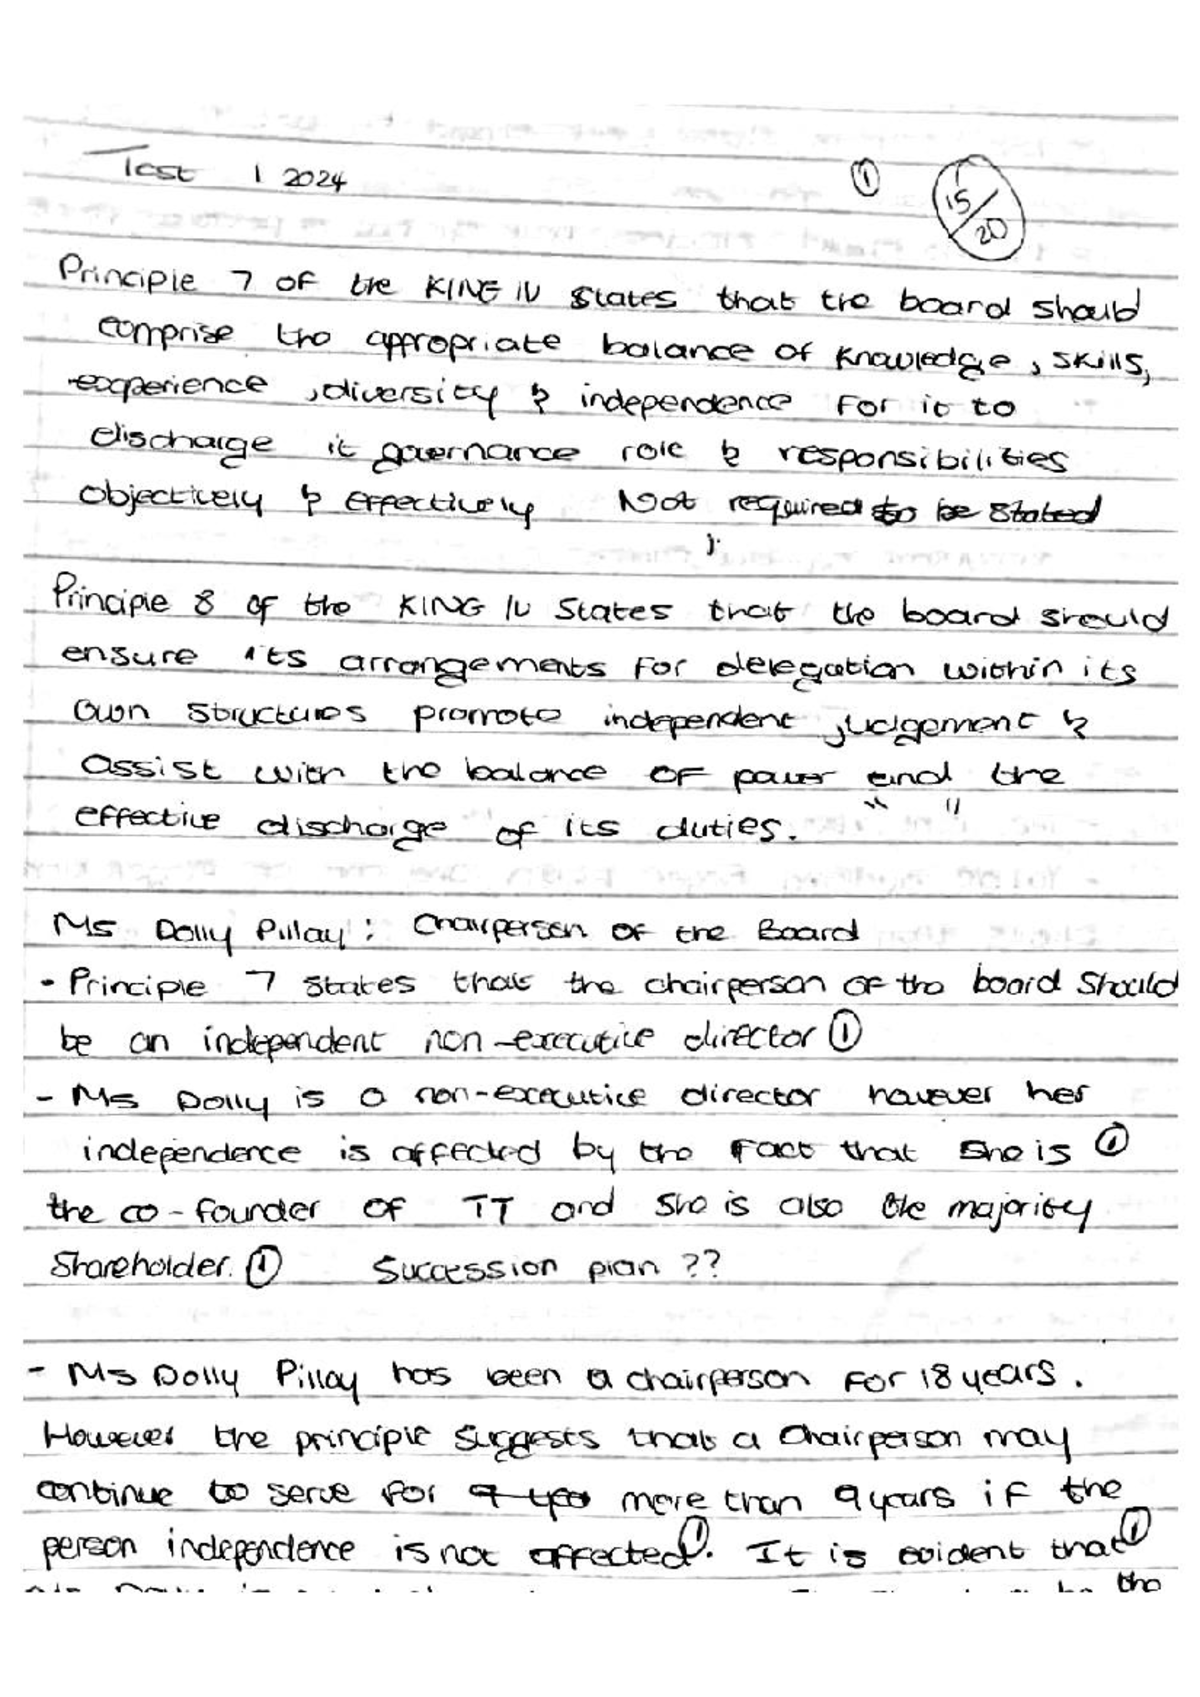 Test 1 2024 ① 15/20
Principle 7 of the KING IV states that the board should
comprise the appropriate balance of knowledge, skills,
experience, diversity & independence for it to
discharge it governance role & responsibilities
objectively & effectively Not required to be stated
Principle 8 of the KING IV states that the board should
ensure its arrangements for delegation within its
own structures promote independent judgement &
assist with the balance of power and the
effective discharge of its duties. " "
Ms Dolly Pillay: Chairperson of the Board
- Principle 7 states that the chairperson of the board should
be an independent non-executive director ①
- Ms Dolly is a non-executive director however her
independence is affected by the fact that she is ①
the co-founder of TT and she is also the majority
shareholder. ① Succession plan ??
- Ms Dolly Pillay has been a chairperson for 18 years.
However the principle suggests that a chairperson may
continue to serve for more than 9 years if the
person independence is not affected ①. It is evident that ①
the